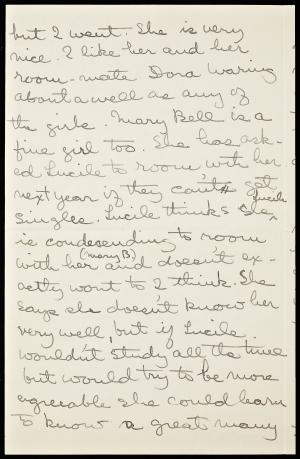 but I went. She is very
nice. I like her and her
room-mate Dora Waring
about a well as any of
the girls. Mary Bell is a
fine girl too. She has ask-
ed Lucile to room with her
next year if they can't get
singles. Lucile thinks she Lucile
is condesending to room
with her (Mary B.) and doesn't ex-
actly want to I think. She
says she doesn't know her
very well, but if Lucile
wouldn't study all the time
but would try to be more
agreeable she could learn
to know a great many